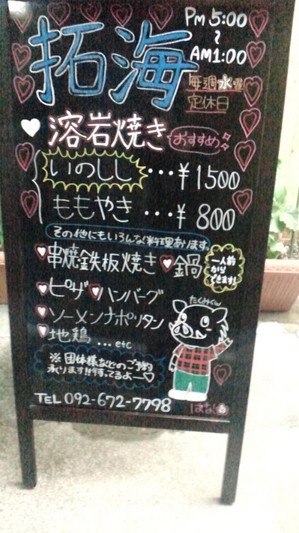 拓海
PM 5:00
～
AM1:00
毎週水曜
定休日
溶岩焼き
おすすめ
いのしし…¥1500
ももやき…¥800
その他にもいろんなお料理あります。
串焼 鉄板焼き 鍋
一人前からできます!
ピザ ハンバーグ
ソーメンナポリタン
地鶏…etc
たくみくん
※団体様などのご予約
承ります!!待ってるよー
TEL 092-672-7798